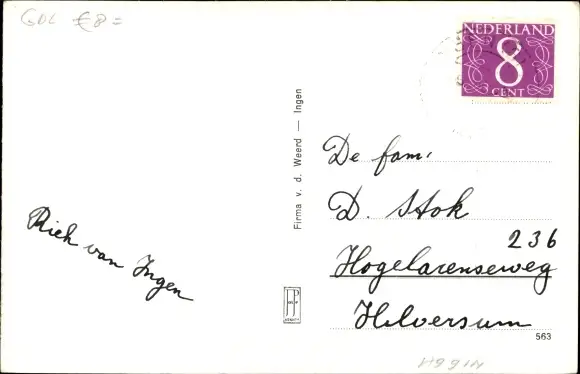 GDL €8=
NEDERLAND
8
CENT
Firma v. d. Weerd — Ingen
De fam.
D. Stok
236
Hogelarenseweg
Hilversum
Riek van Ingen
563